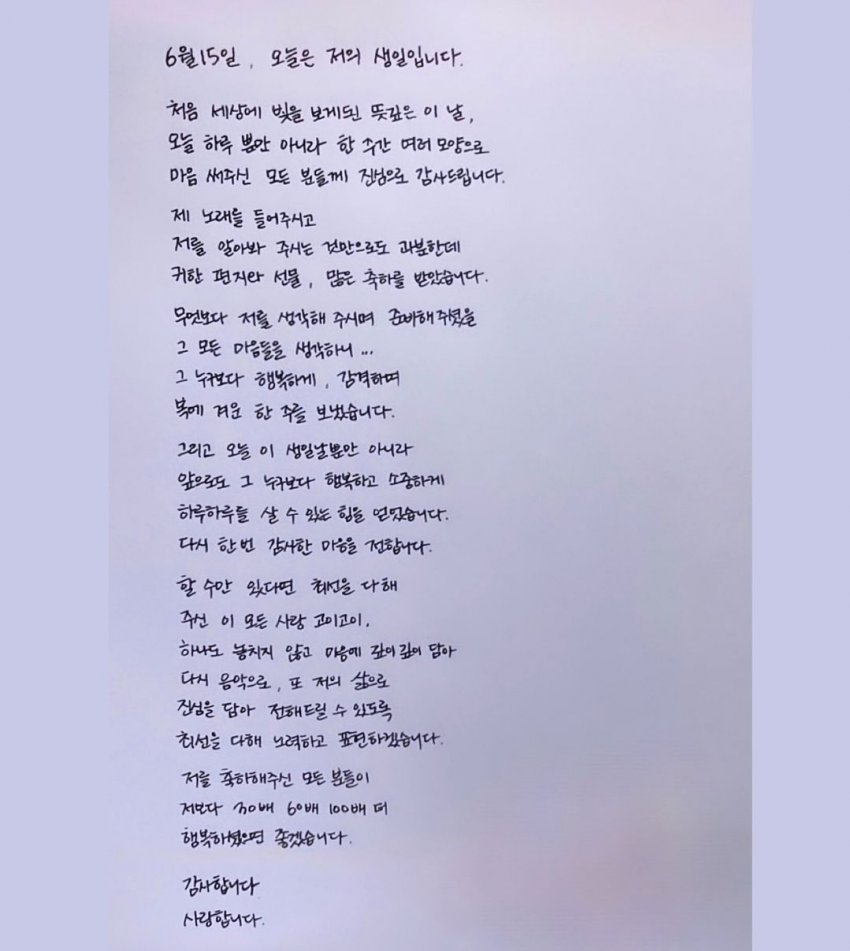 6월15일, 오늘은 저의 생일입니다.
처음 세상에 빛을 보게된 뜻깊은 이 날,
오늘 하루 뿐만 아니라 한 주간 여러 모양으로
마음 써주신 모든 분들께 진심으로 감사드립니다.
제 노래를 들어주시고
저를 알아봐 주시는 것만으로도 과분한데
귀한 편지와 선물, 많은 축하를 받았습니다.
무엇보다 저를 생각해 주시며 준비해주셨을
그 모든 마음들을 생각하니...
그 누구보다 행복하게, 감격하며
복에 겨운 한 주를 보냈습니다.
그리고 오늘 이 생일날뿐만 아니라
앞으로도 그 누구보다 행복하고 소중하게
하루하루를 살 수 있는 힘을 얻었습니다.
다시 한번 감사한 마음을 전합니다.
할 수만 있다면 최선을 다해
주신 이 모든 사랑 고이고이,
하나도 놓치지 않고 마음에 깊이깊이 담아
다시 음악으로, 또 저의 삶으로
진심을 담아 전해드릴 수 있도록
최선을 다해 노력하고 표현하겠습니다.
저를 축하해주신 모든 분들이
저보다 30배 60배 100배 더
행복하셨으면 좋겠습니다.
감사합니다
사랑합니다.